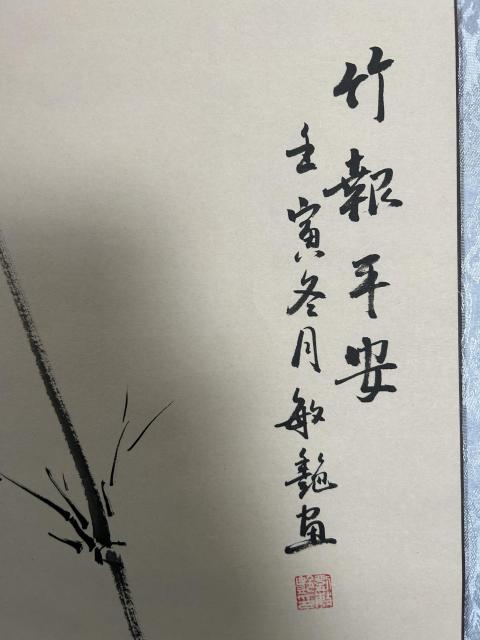 竹報平安
壬寅冬月敏艷畫